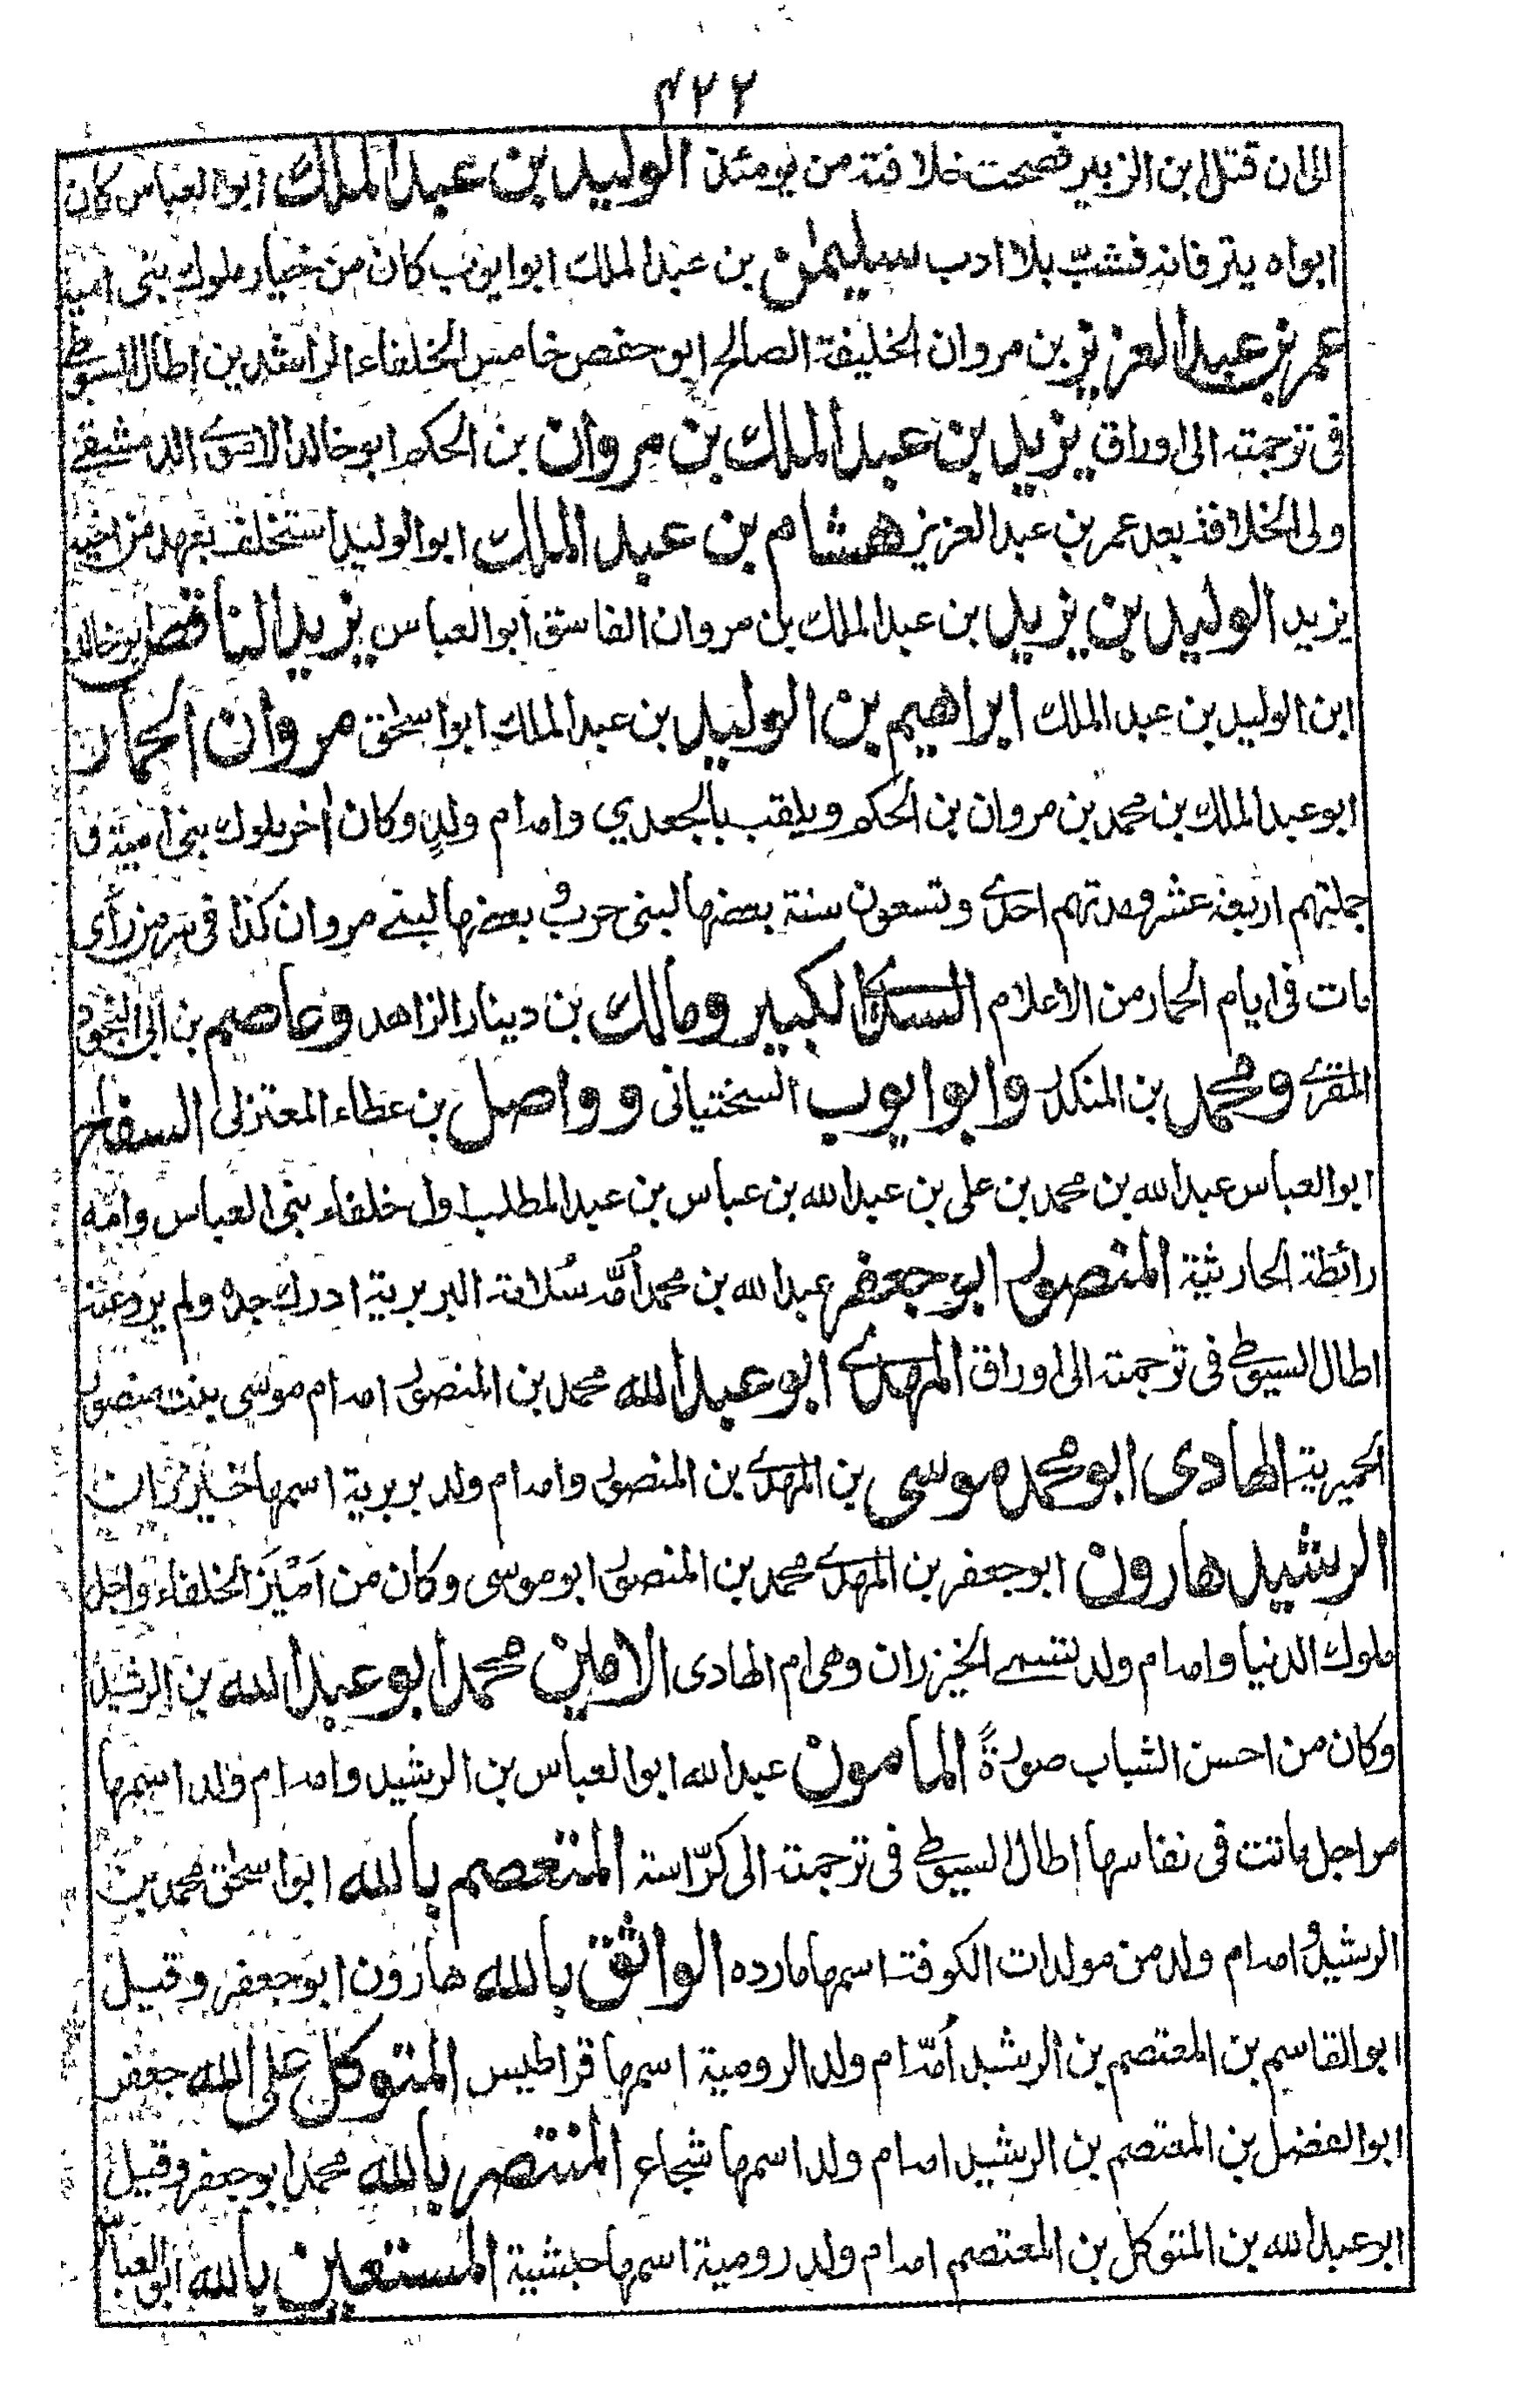 ۴۲۲
الى ان قتل ابن الزبير فصحت خلافته من يومئذ الوليد بن عبد الملك ابو العباس كان
ابواه يترفانه فشب بلا ادب سليمٰن بن عبد الملك ابو ايوب كان من خيار ملوك بنى امية
عمر بن عبد العزيز بن مروان الخليفة الصالح ابو حفص خامس الخلفاء الراشدين اطال السيوطى
فى ترجمته الى اوراق يزيد بن عبد الملك بن مروان بن الحكم ابو خالد الاموى الدمشقے
ولى الخلافة بعد عمر بن عبد العزيز هشام بن عبد الملك ابو الوليد استخلف بعهد من اخيه
يزيد الوليد بن يزيد بن عبد الملك بن مروان الفاسق ابو العباس يزيد الناقص ابو خالد
ابن الوليد بن عبد الملك ابراهيم بن الوليد بن عبد الملك ابو اسحٰق مروان الحمار
ابو عبد الملك بن محمد بن مروان بن الحكم ويلقب بالجعدي وامه ام ولدٍ وكان اٰخر ملوك بنى امية و
جملتهم اربعة عشر ومدتهم احدى وتسعون سنة بعضها لبنى حرب و بعضها لبنے مروان كذا فى سر من رأى
مات فى ايام الحمار من الاعلام السدى الكبير ومالك بن دينار الزاهد وعاصم بن ابى النجود
المقرے ومحمد بن المنكدر وابو ايوب السختيانى و واصل بن عطاء المعتزلى السفاح
ابو العباس عبد الله بن محمد بن على بن عبد الله بن عباس بن عبد المطلب اول خلفاء بنى العباس وامه
رائطة الحارثية المنصور ابو جعفر عبد الله بن محمد اُمّه سُلامة البربرية ادرك جده ولم يرو عنه
اطال السيوطى فى ترجمته الى اوراق المهدى ابو عبد الله محمد بن المنصور امه ام موسى بنت منصور
الحميرية الهادى ابو محمد موسى بن المهدى بن المنصور وامه ام ولد بربرية اسمها خيزران
الرشيد هارون ابو جعفر بن المهدى محمد بن المنصور ابو موسى وكان من اَمْيَزِ الخلفاء واجل
ملوك الدنيا وامه ام ولد تسمى الخيزران وهى ام الهادى الامين محمد ابو عبد الله بن الرشيد
وكان من احسن الشباب صورةً المامون عبد الله ابو العباس بن الرشيد وامه ام ولد اسمها
مراجل ماتت فى نفاسها اطال السيوطى فى ترجمته الى كرّاسة المتعصم بالله ابو اسحٰق محمد بن
الرشيد و امه ام ولد من مولدات الكوفة اسمها مارده الواثق بالله هارون ابو جعفر وقيل
ابو القاسم بن المعتصم بن الرشيد اُمّه ام ولد الرومية اسمها قراطيس المتوكل على الله جعفر
ابو الفضل بن المعتصم بن الرشيد امه ام ولد اسمها شجاع المنتصر بالله محمد ابو جعفر وقيل
ابو عبد الله بن المتوكل بن المعتصم امه ام ولد رومية اسمها حبشية المستعين بالله ابو العباس